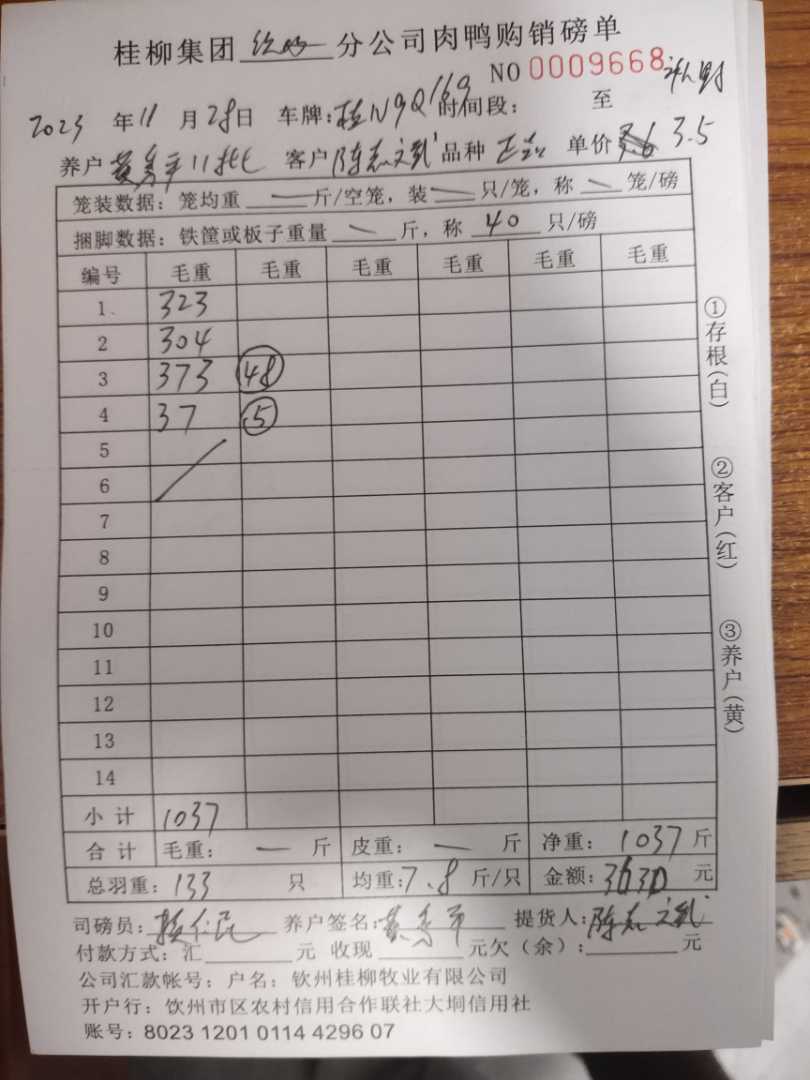 桂柳集团 分公司肉鸭购销磅单
NO 0009668
2023 年 11 月 28 日 车牌: 桂N9Q169 时间段: 至
养户 黄秀平11批 客户 陈志文 品种 单价 3.5
笼装数据: 笼均重 — 斤/空笼, 装 — 只/笼, 称 — 笼/磅
捆脚数据: 铁筐或板子重量 — 斤, 称 40 只/磅
编号 毛重 毛重 毛重 毛重 毛重 毛重
1 323
2 304
3 373 48
4 37 5
5
6
7
8
9
10
11
12
13
14
小计 1037
合计 毛重: — 斤 皮重: — 斤 净重: 1037 斤
总羽重: 133 只 均重: 7.8 斤/只 金额: 3630 元
司磅员: 养户签名: 黄秀平 提货人: 陈志文
付款方式: 汇 元 收现 元欠(余): 元
公司汇款帐号: 户名: 钦州桂柳牧业有限公司
开户行: 钦州市区农村信用合作联社大垌信用社
账号: 8023 1201 0114 4296 07
①存根(白)
②客户(红)
③养户(黄)